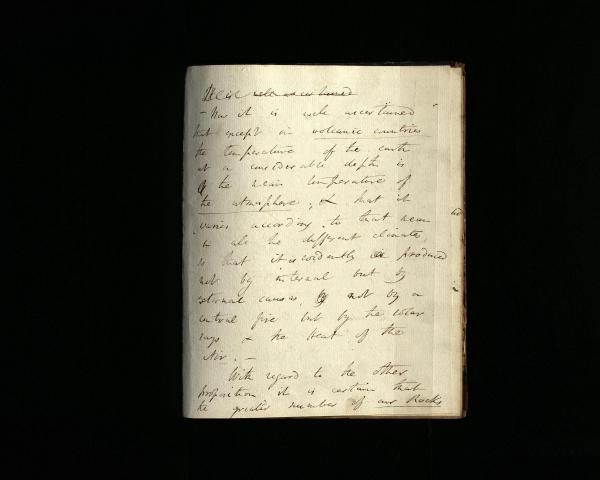 well ascertained
- Now it is well ascertained
that except in volcanic countries
the temperature of the earth
at a considerable depth is
the mean temperature of
the atmosphere; & that it
varies according to that mean
in all the different climates,
so that it is evidently produced
not by internal but by
external causes, not by a
central fire but by the solar
rays & the Heat of the
Air. —
With regard to the other
proposition it is certain that
the greater number of our Rocks